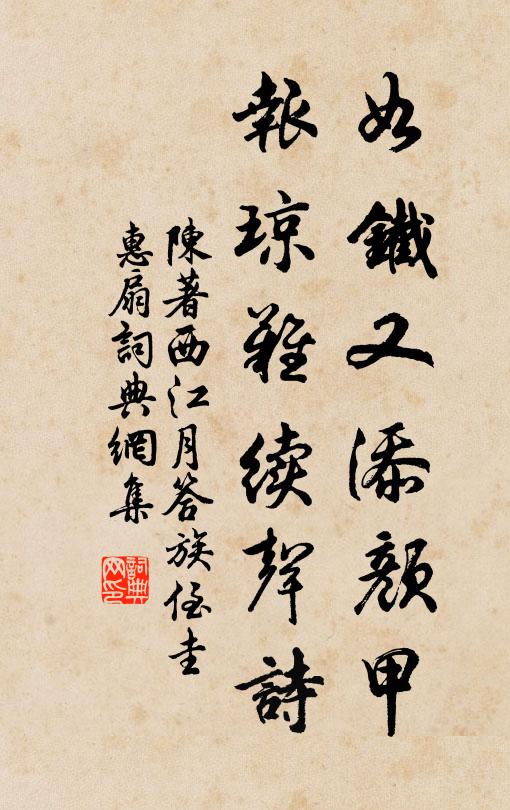 如鐵又添顏甲
報琼難续聲詩
陳著西江月答族侄圭
惠扇詞典網集
詞典
网印